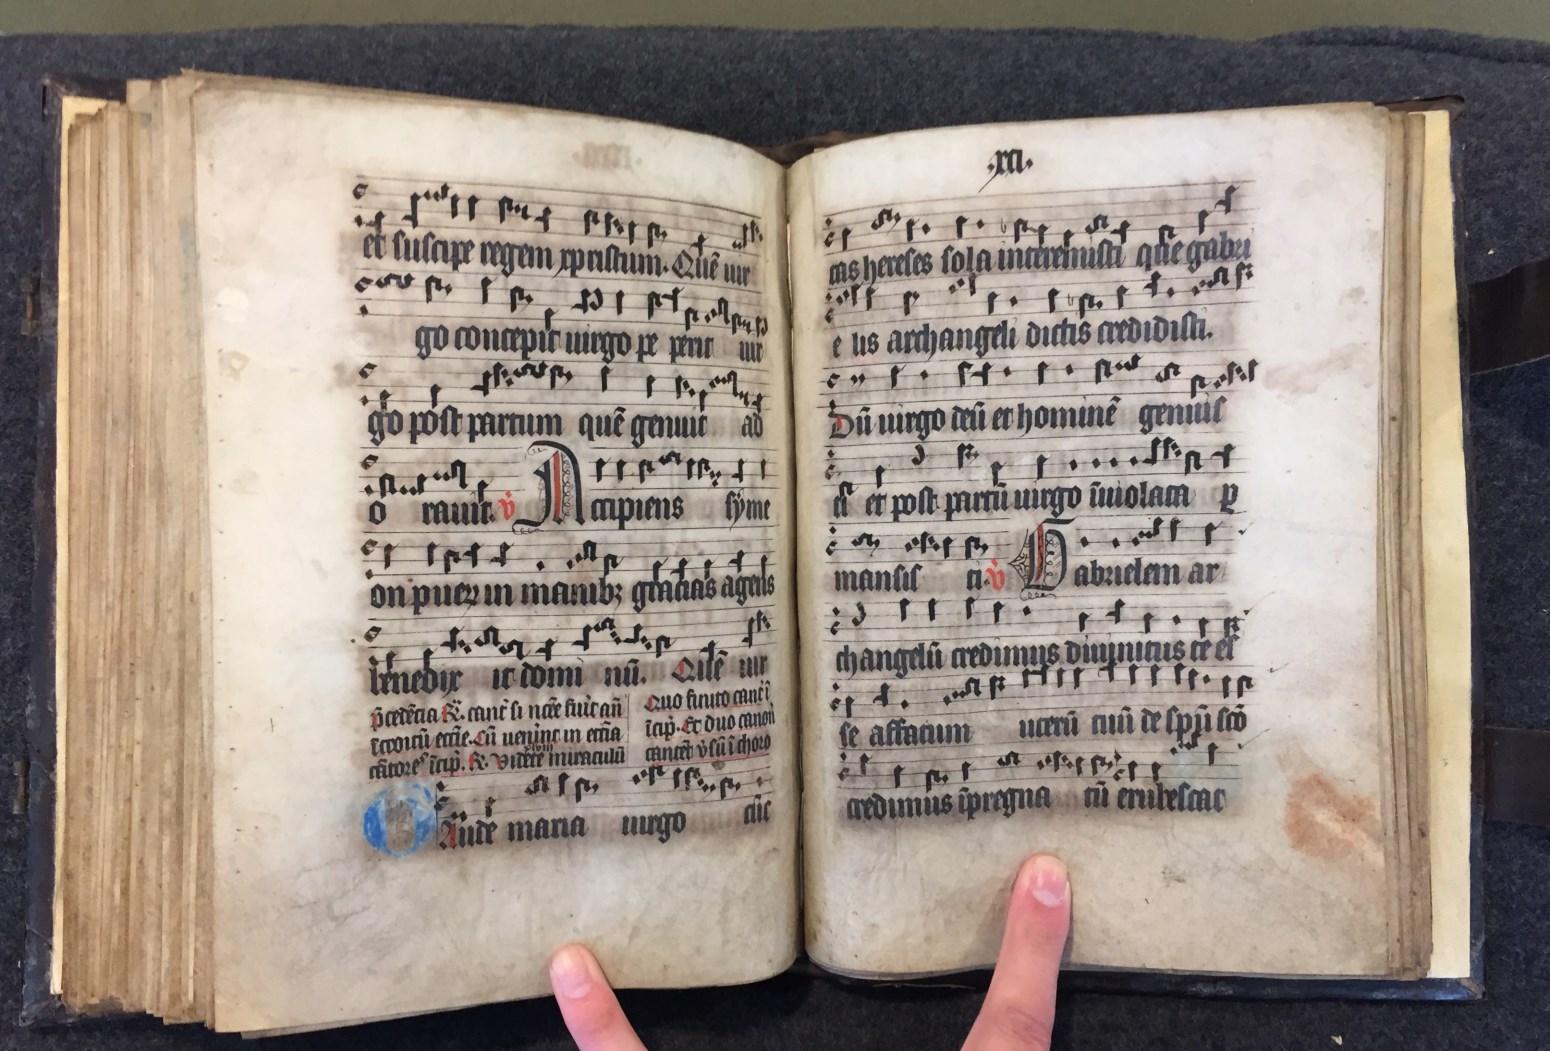 et suscipe regem xpristum. Quē uir
go concepit uirgo pe perit uir
go post partum quē genuit ad
o rauit. v̇ Accipiens syme
on puerꝫ in manibꝫ gracias agens
benedix it domi nū. Quē uir
p̄cedētia ꝶ. canēt si nc̄ē fuit añ
ītroitū eccīe. Cū ueniūt in eccīa
cātores īcip̄. ꝶ. Videte miraculū
Quo finito canēt ī
īcip̄. Et duo canoñ
cantēt v̇sū ī choro
Gaude maria uirgo cūc
.xci.
tas hereses sola interemisti que gabri
e lis archangeli dictis credidisti.
Dū uirgo deū et hominē genuis
ti et post partū uirgo īuiolata ꝑ
mansis ti. v̇ Gabrielem ar
changelū credimus diuinitus te es
se affatum uterū tuū de sp̄ū sc̄o
credimus īpregna tū erubescat